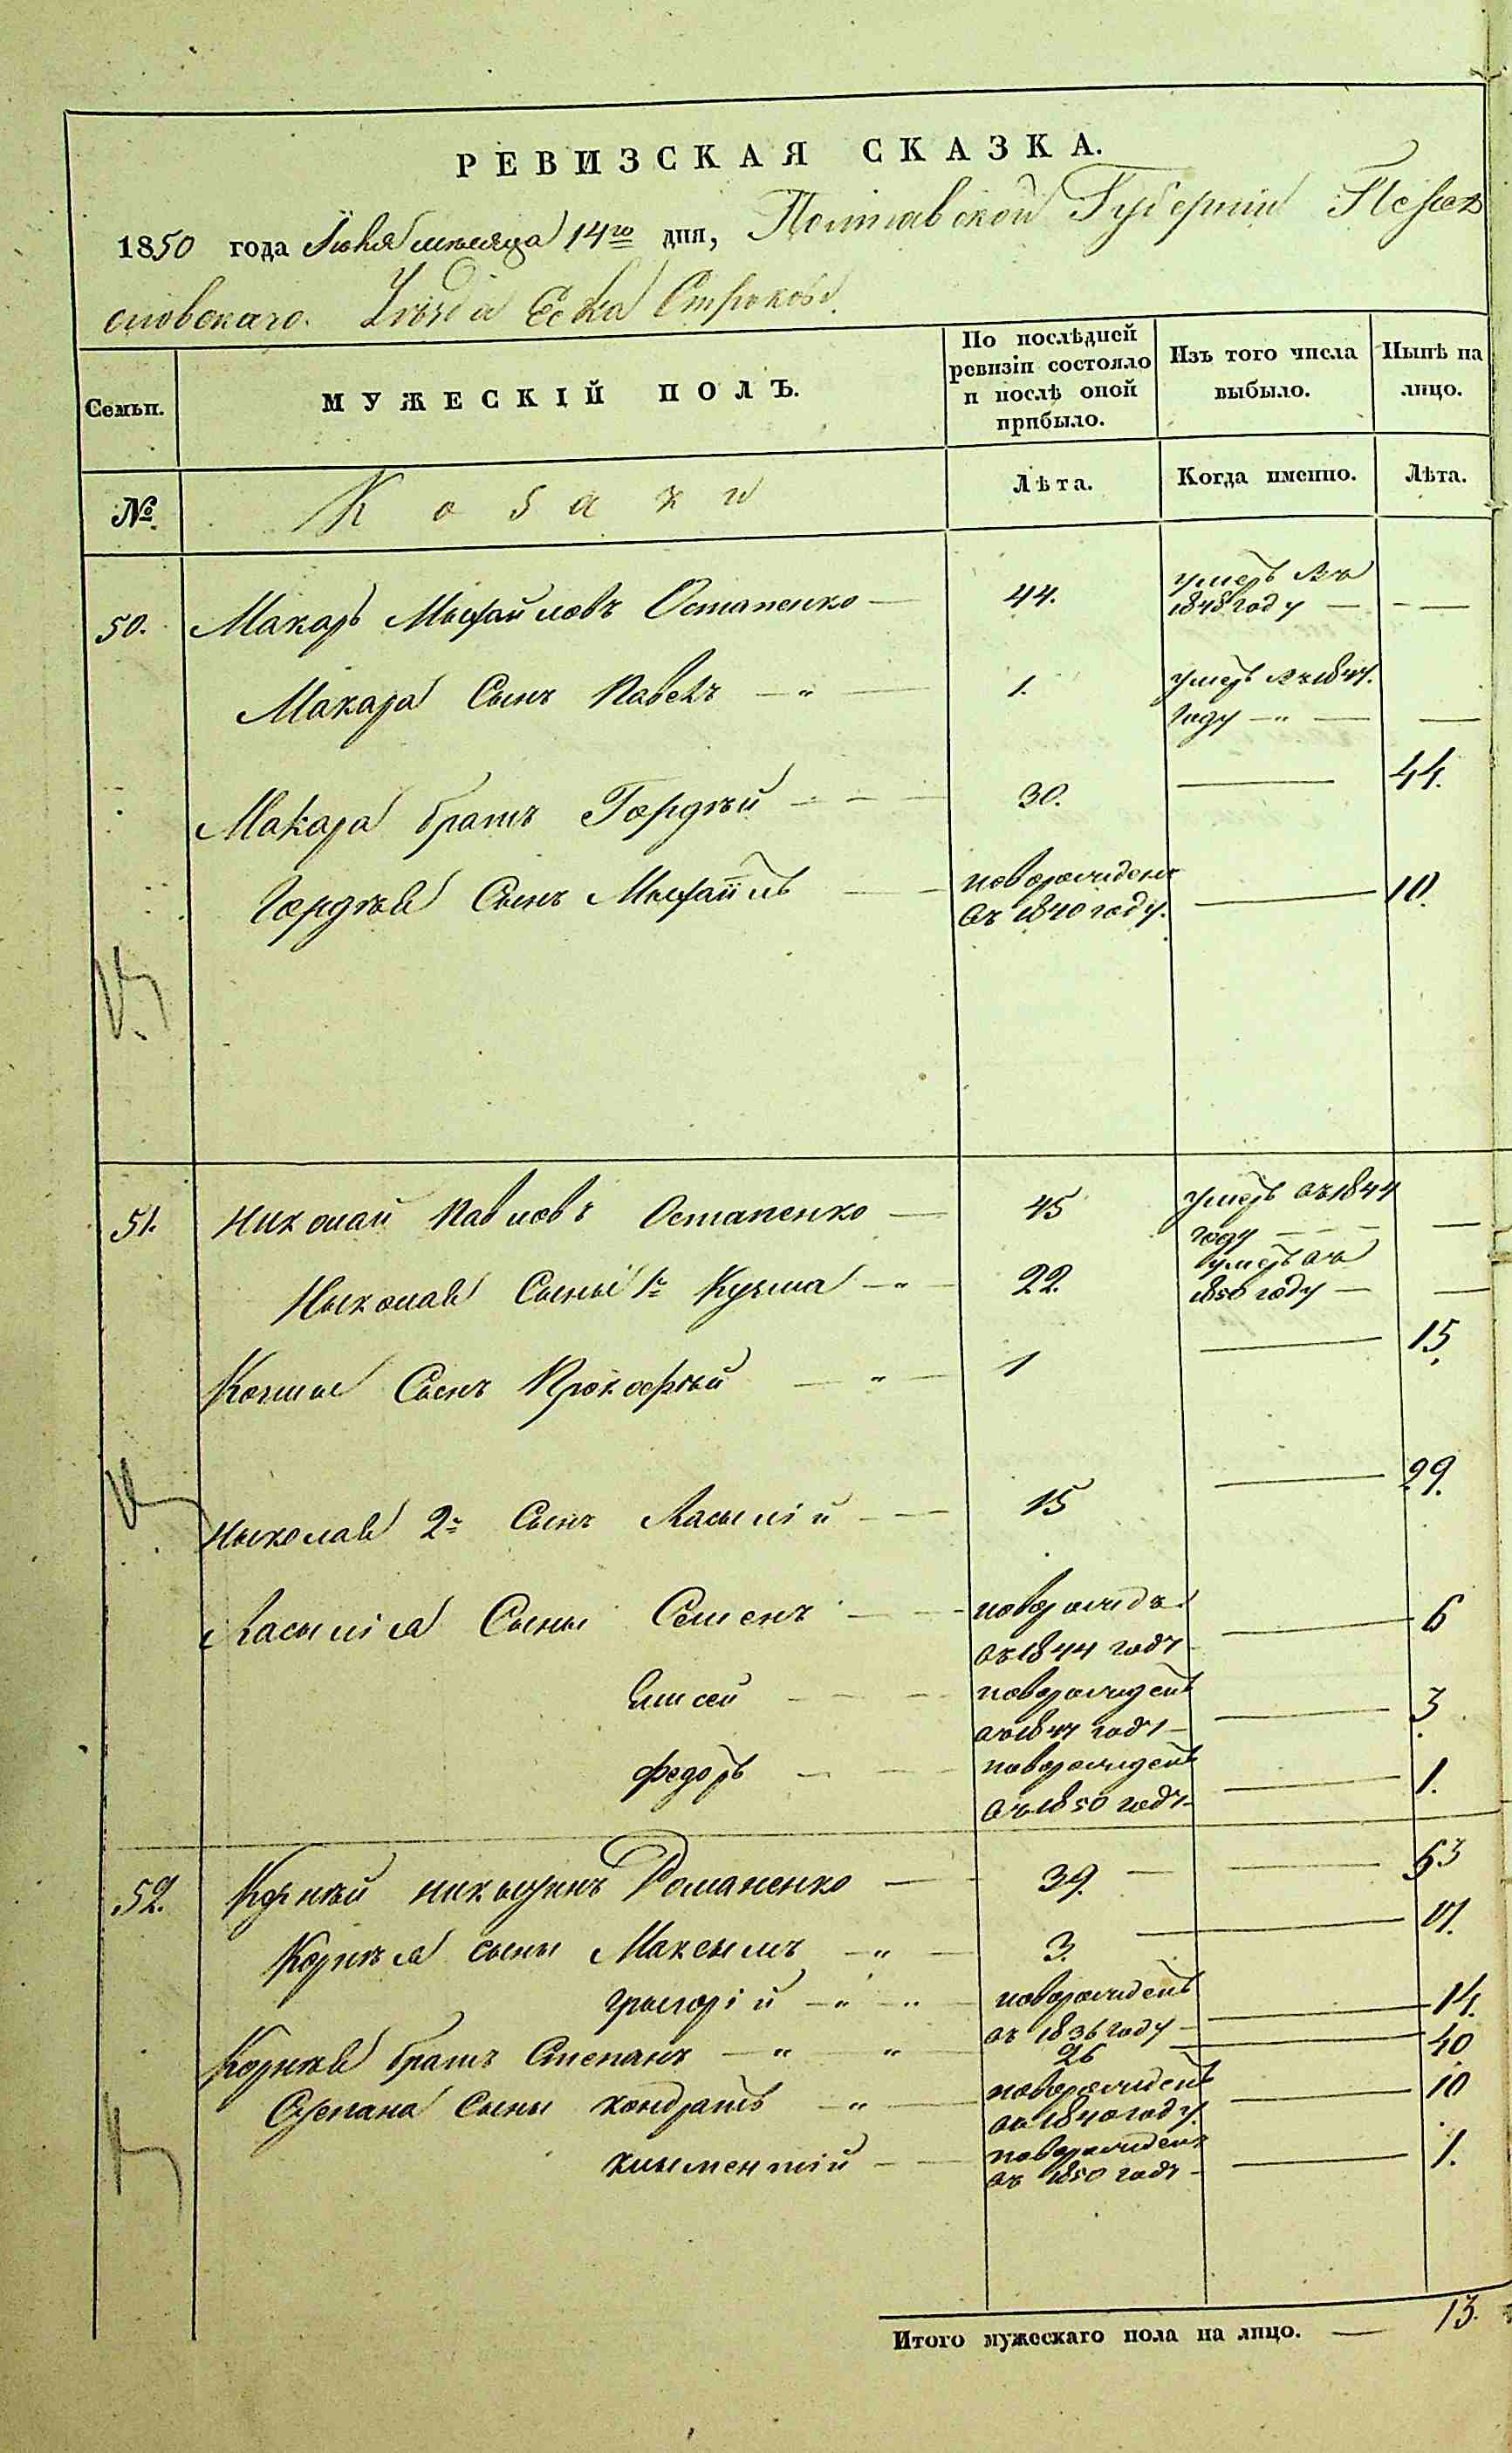 РЕВИЗСКАЯ СКАЗКА.
1850 года Июня месяца 14го дня, Полтавской Губерніи Переяс
ловскаго Уезда Села Строковы
Семьи. МУЖЕСКІЙ ПОЛЪ. По послѣдней ревизіи состояло и послѣ оной прибыло. Изъ того числа выбыло. Нынѣ на лицо.
№ Козаки Лѣта. Когда именно. Лѣта.
50. Макаръ Михайловъ Остапенко — 44. умеръ въ 1848 году — — —
Макара Сынъ Павелъ — „ — 1. умеръ въ 1847. году — „ — —
Макара братъ Гордѣй — — — 30. — 44.
Гордѣя Сынъ Михаилъ — — новорожденъ въ 1840 году. — 10.
51. Николай Павловъ Остапенко — 45 умеръ въ 1844 году — — — —
Николая Сыны 1й Кузьма — „ — 22. умеръ въ 1850 году — —
Козьмы Сынъ Прокофѣй — „ — 1 — 15.
Николая 2й Сынъ Василій — — 15 — 29.
Василія Сыны Семенъ — — новорожденъ въ 1844 году — — 6
Елисей — — — новорожденъ въ 1847 году — — 3
Федоръ — — — новорожденъ въ 1850 году — — 1.
52. Корнѣй Никитинъ Романенко — 39. — — 53
Корнѣя сыны Максимъ — „ — 3. — 17.
Григорій — „ — „ — новорожденъ въ 1836 году — — 14.
Корнѣя братъ Степанъ — „ — „ 26 — 40
Степана Сыны Кондратъ — „ — новорожденъ въ 1840 году. — 10
Климентій — — новорожденъ въ 1850 году — — 1.
Итого мужескаго пола на лицо. — 13.